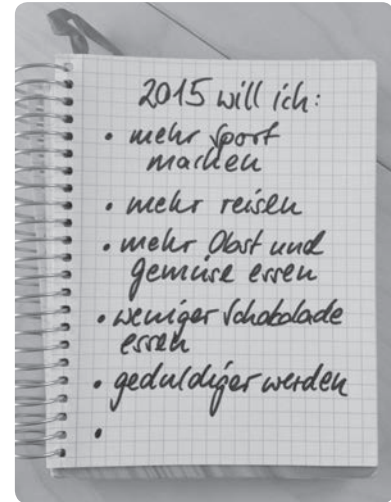 2015 will ich:
• mehr Sport
machen
• mehr reisen
• mehr Obst und
Gemüse essen
• weniger Schokolade
essen
• geduldiger werden
•